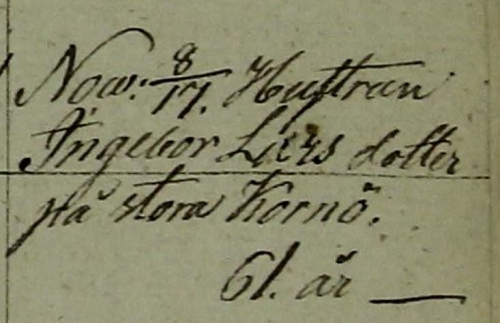 Nov: 8/17. Hustrun
Ingebor Lars dotter
på stora Kornö.
61. år